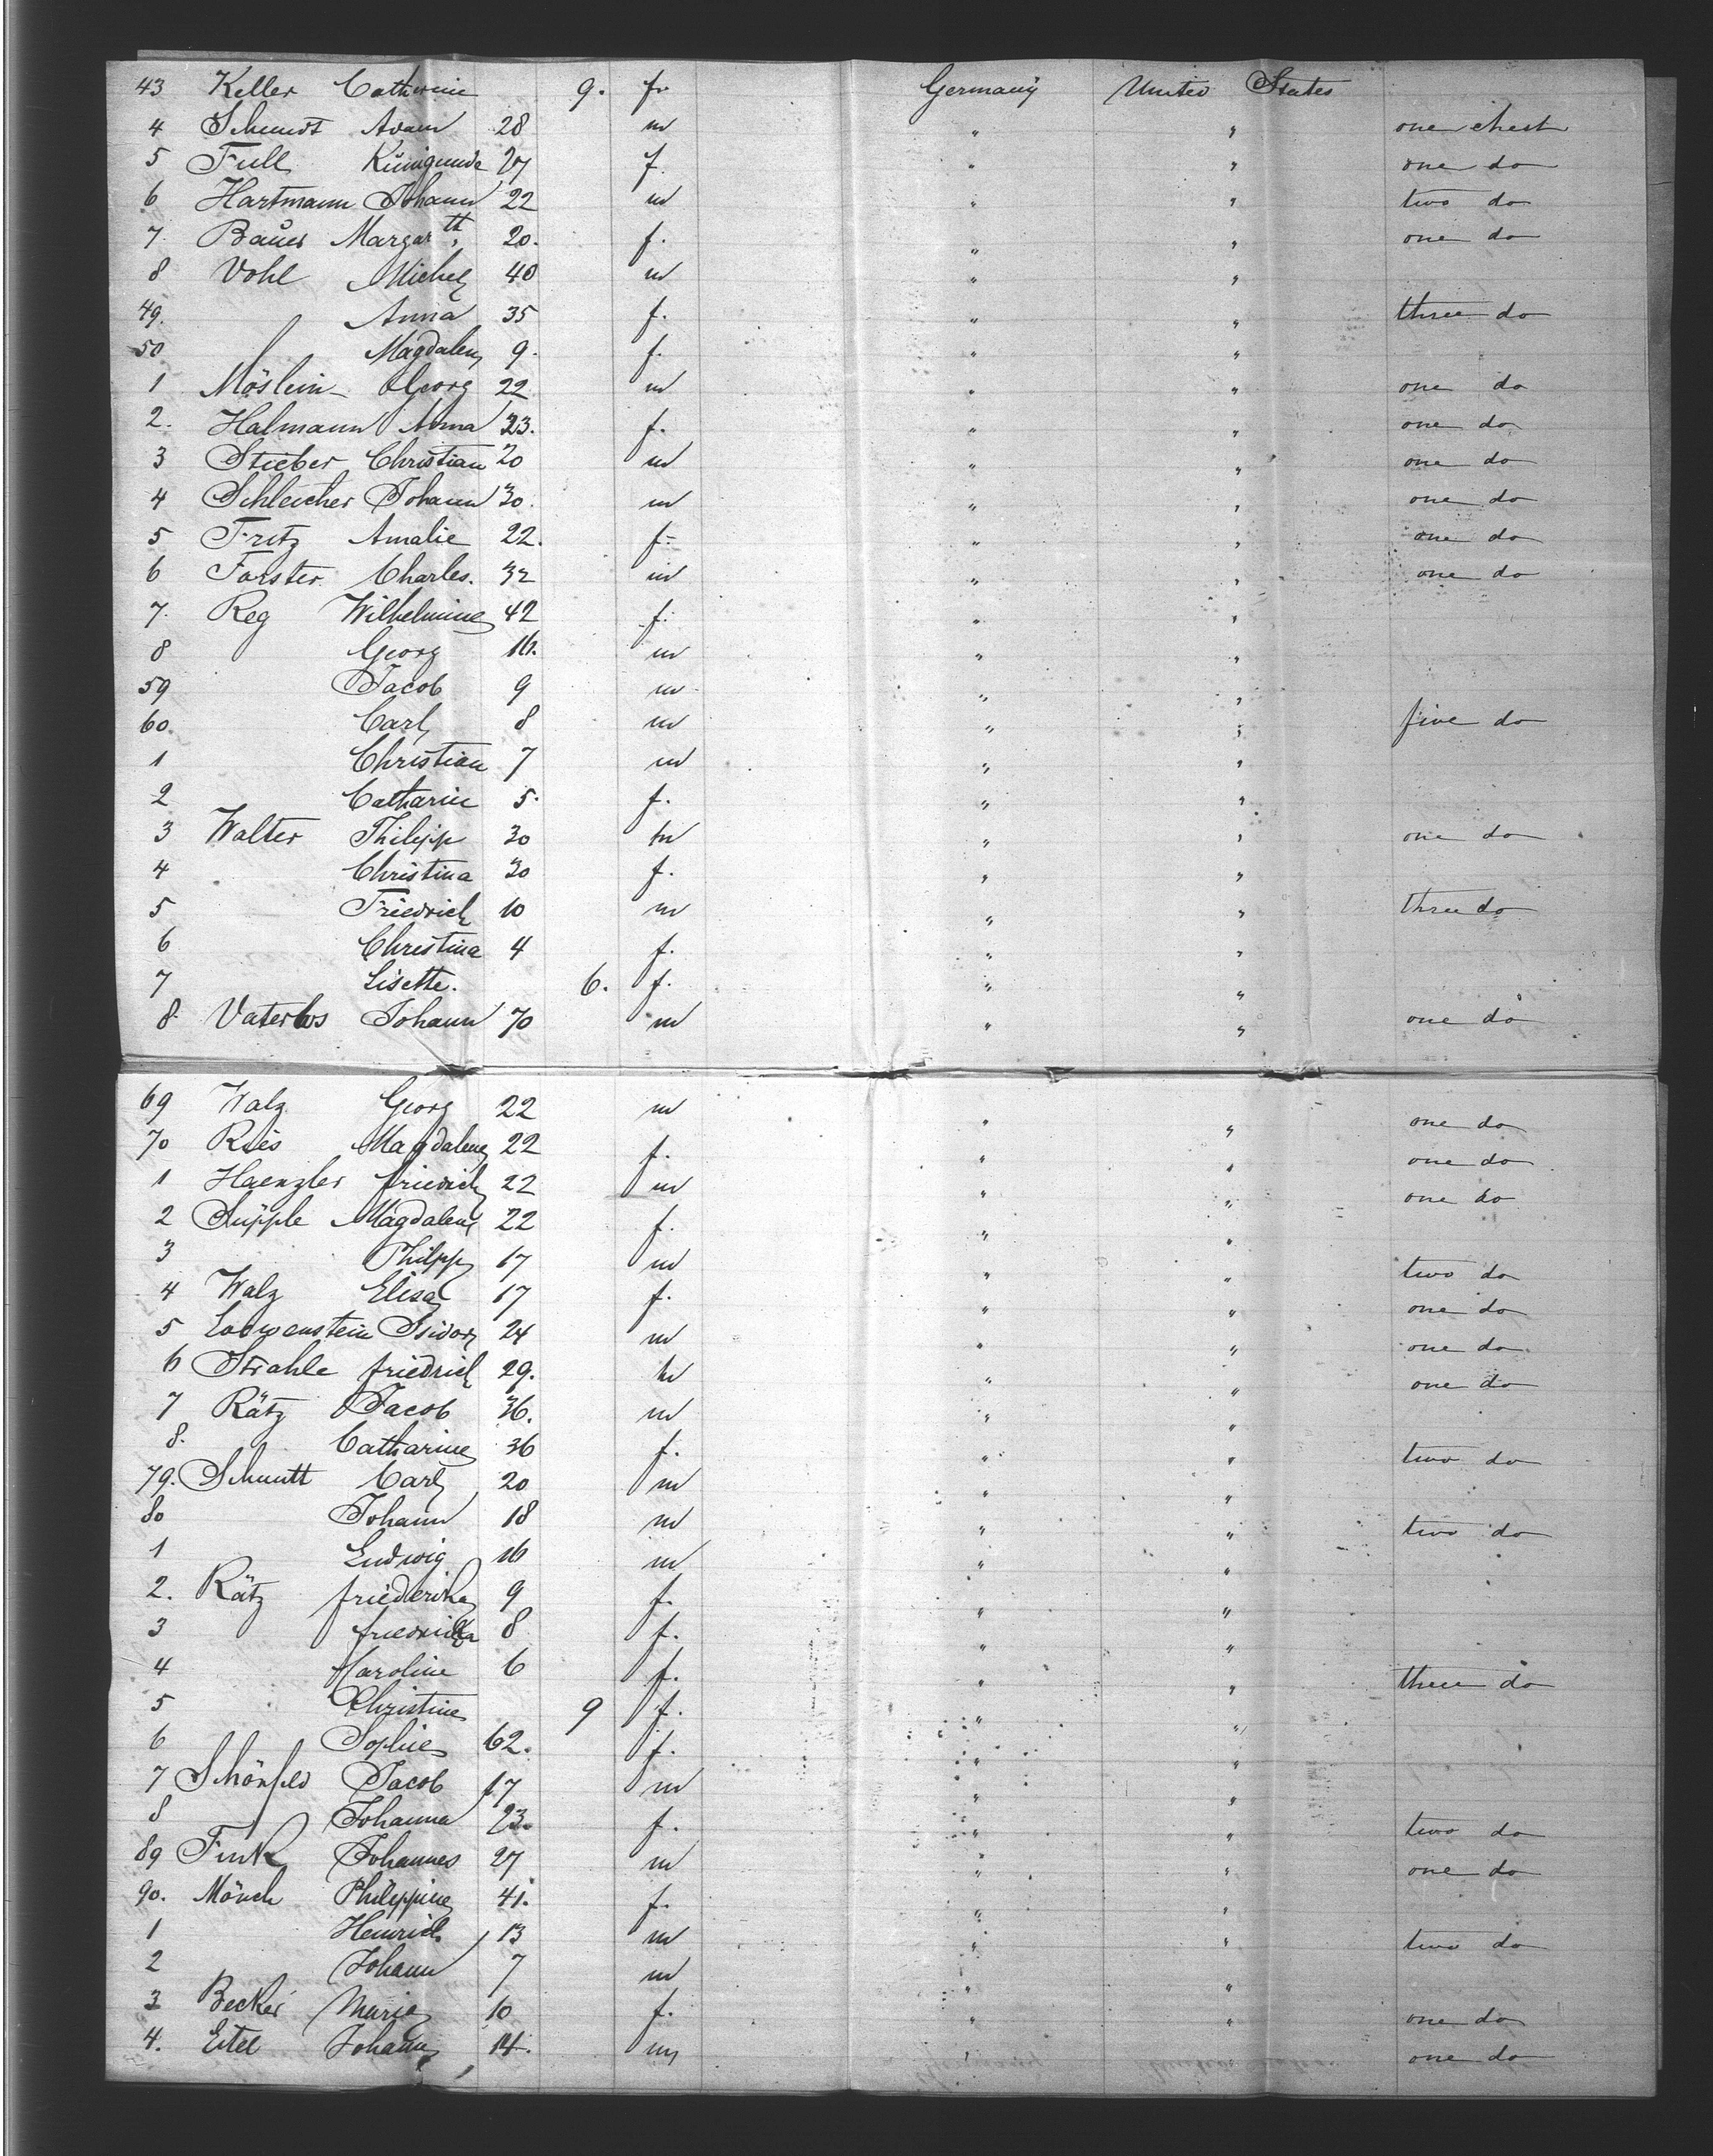 43 Keller Catherine 9. f. Germany United States
4 Schmidt Adam 28 m " " one chest
5 Full Kunigunde 27 f. " " one do
6 Hartmann Johann 22 m " " two do
7. Bauer Margar th. 20. f. " " one do
8 Vohl Michel 40 m " "
49. Anna 35 f. " " three do
50 Magdalen 9. f. " "
1 Möslein Georg 22 m " " one do
2. Halmann Anna 23. f. " " one do
3 Stieber Christian 20 m " " one do
4 Schleicher Johann 30. m " " one do
5 Fritz Amalie 22. f. " " one do
6 Forster Charles. 32 m " " one do
7. Reg Wilhelmine 42 f. " "
8 Georg 16. m " "
59 Jacob 9 m " "
60. Carl 8 m " " five do
1 Christian 7 m " "
2 Catharin 5. f. " "
3 Walter Philipp 30 m " " one do
4 Christina 30 f. " "
5 Friedrich 10 m " " three do
6 Christina 4 f. " "
7 Lisette. 6. f. " "
8. Johann 70 m " " one do
69 Walz Georg 22 m " " one do
70 Ries Magdalena 22 f. " " one do
1 Haenzler friedrich 22 m " " one do
2 Süpple Magdalena 22 f. " "
3 Philipp 17 m " " two do
4 Walz Elisa 17 f. " " one do
5 Loewenstein Isidor 24 m " " one do
6 Strahle friedrich 29. m " " one do
7 Rätz Jacob 36. m " "
8. Catharine 36 f. " " two do
79. Schmitt Carl 20 m " "
80 Johann 18 m " " two do
1 Ludwig 16 m " "
2. Rätz friederika 9 f. " "
3 8 f. " "
4 Karoline 6 f. " " three do
5 Christine 9 f. " "
6 Sophie 62. f. " "
7 Schönfeld Jacob 17 m " "
8 Johanna 23. f. " " two do
89 Fink Johannes 27 m " " one do
90. Mönch Philippine 41. f. " "
1 Heinrich 13 m " " two do
2 Johann 7 m " "
3 Becker Maria 10 f. " " one do
4. Eitel Johann 14. m " one do